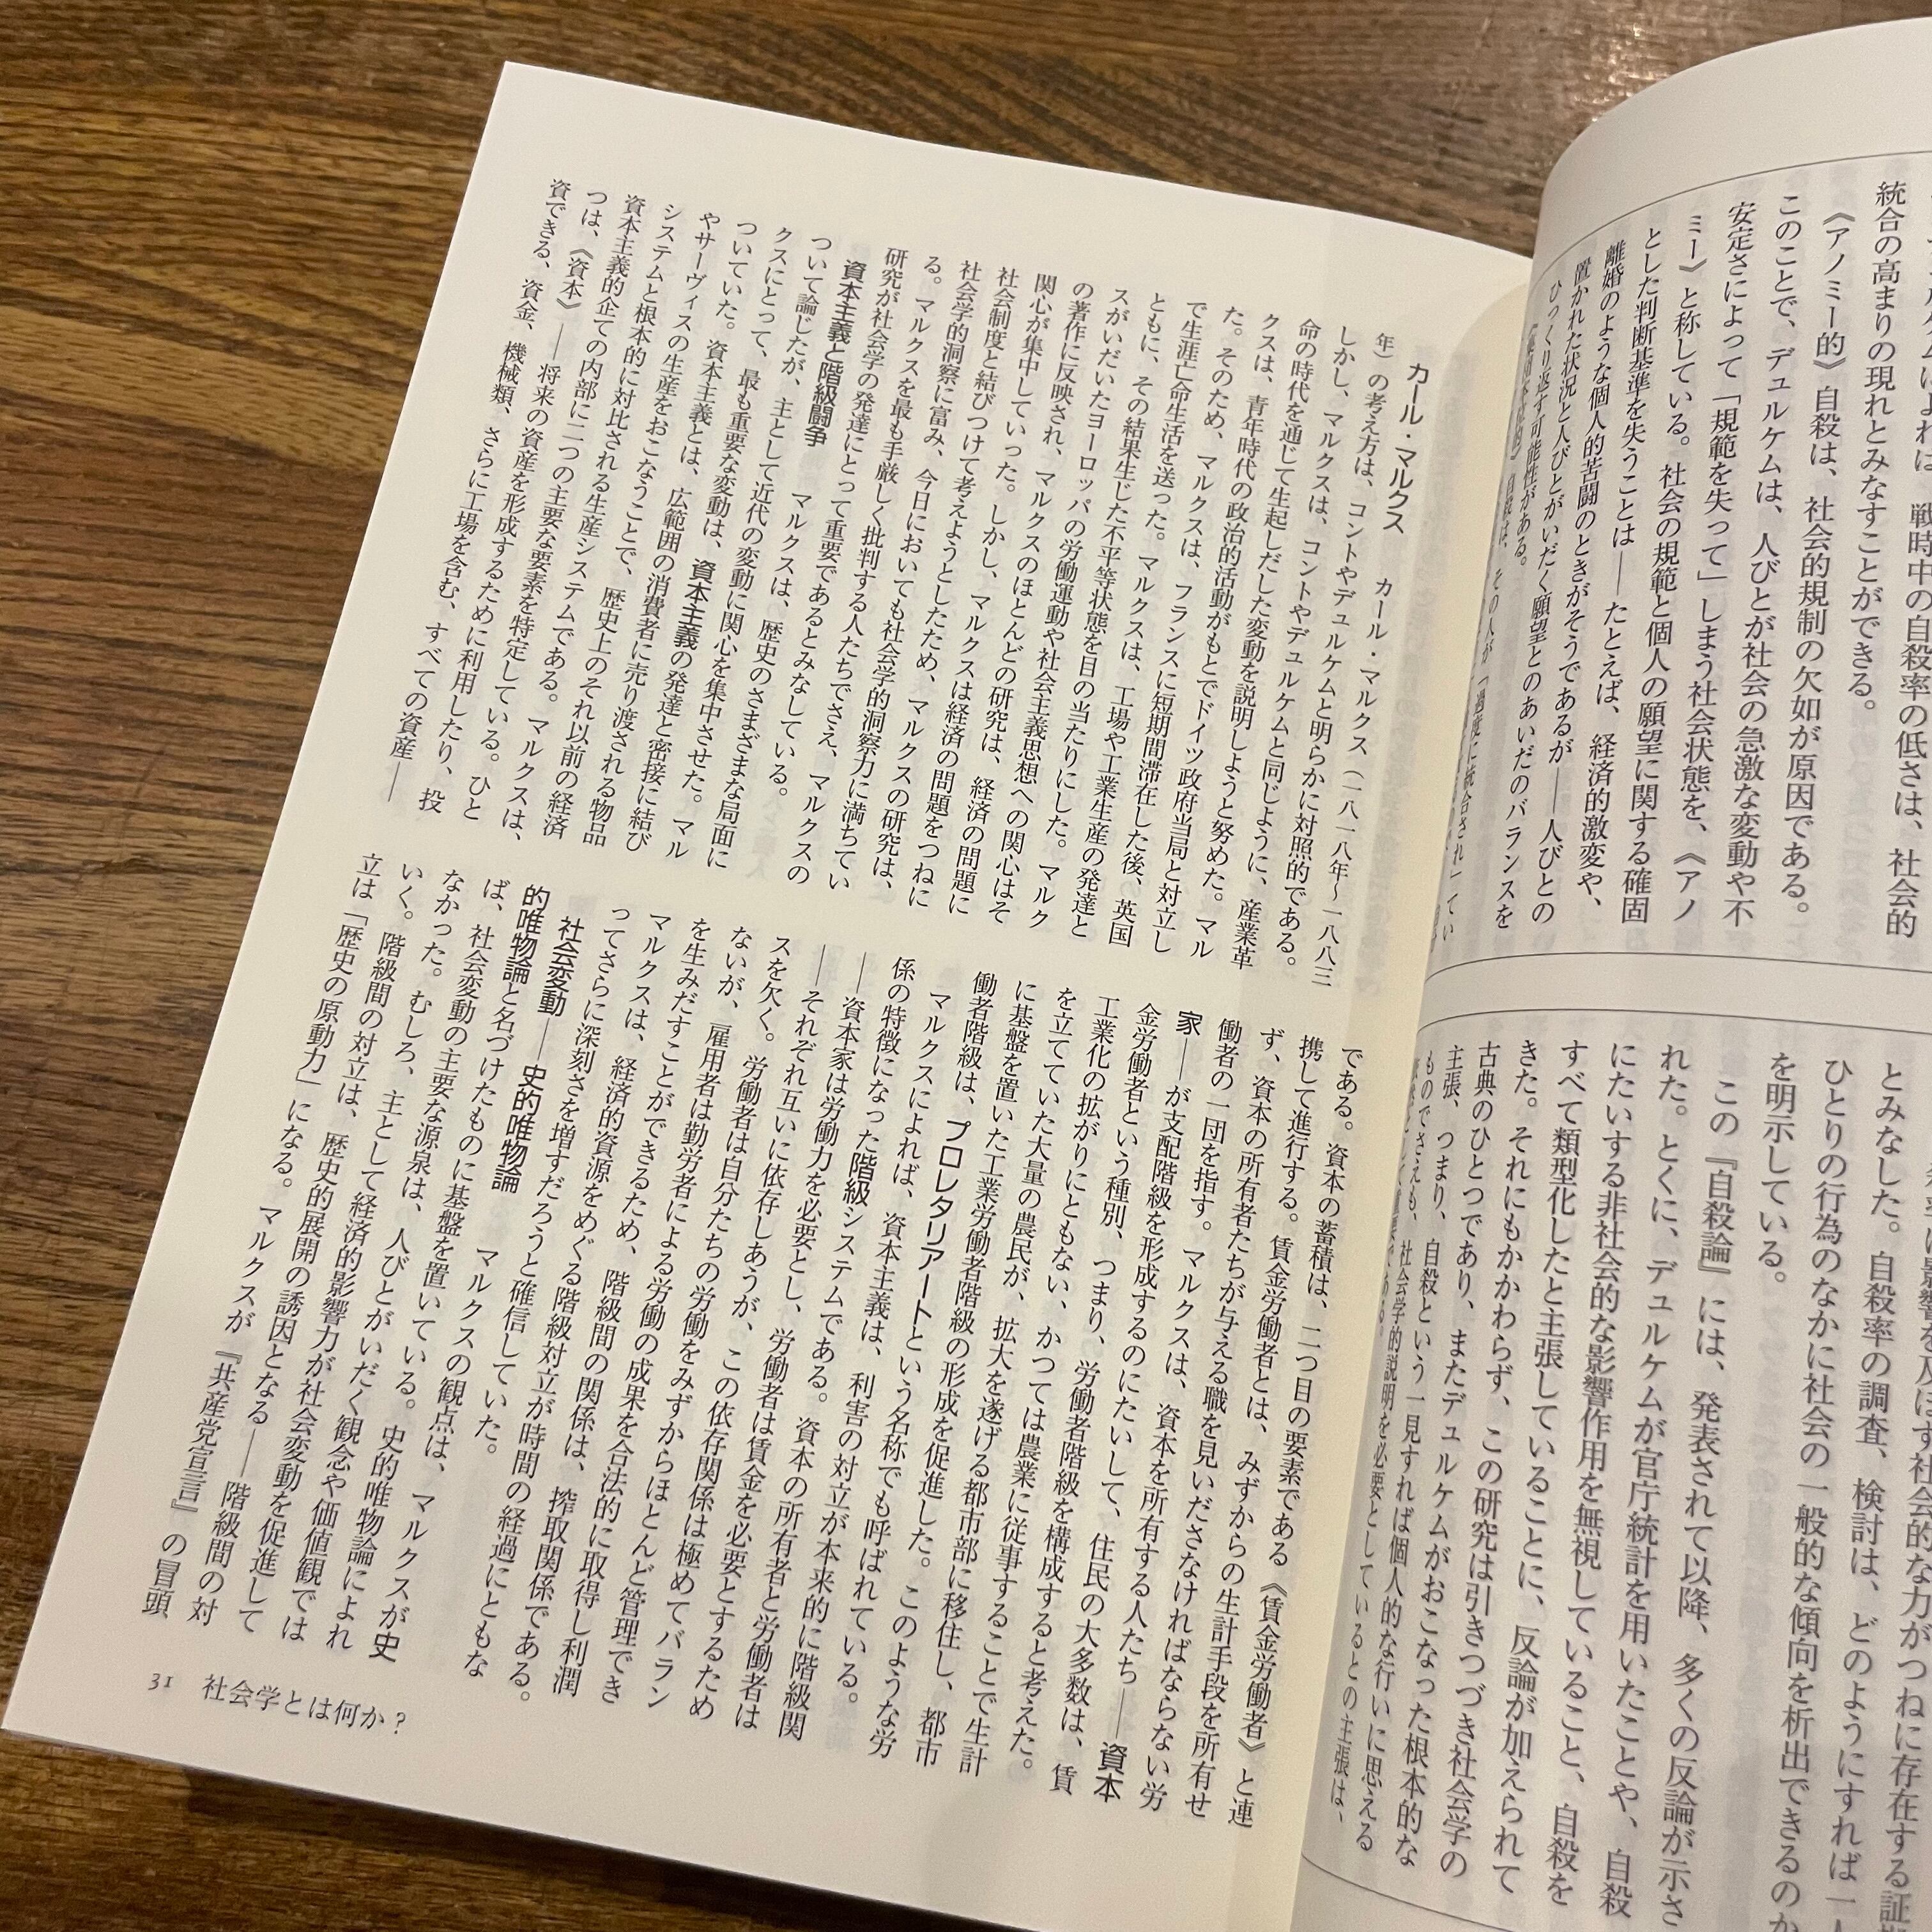 統合の高まりの現れとみなすことができる。
《アノミー的》自殺は、社会的規制の欠如が原因である。
このことで、デュルケムは、人びとが社会の急激な変動や不
安定さによって「規範を失って」しまう社会状態を、《アノ
ミー》と称している。社会の規範と個人の願望に関する確固
とした判断基準を失うことは——たとえば、経済的激変や、
離婚のような個人的苦闘のときがそうであるが——人びとの
置かれた状況と人びとがいだく願望とのあいだのバランスを
ひっくり返す可能性がある。
とみなした。自殺率の調査、検討は、どのようにすれば一人
ひとりの行為のなかに社会の一般的な傾向を析出できるのか
を明示している。
この『自殺論』には、発表されて以降、多くの反論が示さ
れた。とくに、デュルケムが官庁統計を用いたことや、自殺
にたいする非社会的な影響作用を無視していること、自殺を
すべて類型化したと主張していることに、反論が加えられて
きた。それにもかかわらず、この研究は引きつづき社会学の
古典のひとつであり、またデュルケムがおこなった根本的な
主張、つまり、自殺という一見すれば個人的な行いに思える
ものでさえも、社会学的説明を必要としているとの主張は、
カール・マルクス　カール・マルクス（一八一八年〜一八八三
年）の考え方は、コントやデュルケムと明らかに対照的である。
しかし、マルクスは、コントやデュルケムと同じように、産業革
命の時代を通じて生起しだした変動を説明しようと努めた。マル
クスは、青年時代の政治的活動がもとでドイツ政府当局と対立し
た。そのため、マルクスは、フランスに短期間滞在した後、英国
で生涯亡命生活を送った。マルクスは、工場や工業生産の発達と
ともに、その結果生じた不平等状態を目の当たりにした。マルク
スがいだいたヨーロッパの労働運動や社会主義思想への関心はそ
の著作に反映され、マルクスのほとんどの研究は、経済の問題に
関心が集中していった。しかし、マルクスは経済の問題をつねに
社会制度と結びつけて考えようとしたため、マルクスの研究は、
社会学的洞察に富み、今日においても社会学的洞察力に満ちてい
る。マルクスを最も手厳しく批判する人たちでさえ、マルクスの
研究が社会学の発達にとって重要であるとみなしている。
資本主義と階級闘争　マルクスは、歴史のさまざまな局面に
ついて論じたが、主として近代の変動に関心を集中させた。マル
クスにとって、最も重要な変動は、資本主義の発達と密接に結び
ついていた。資本主義とは、広範囲の消費者に売り渡される物品
やサーヴィスの生産をおこなうことで、歴史上のそれ以前の経済
システムと根本的に対比される生産システムである。マルクスは、
資本主義的企ての内部に二つの主要な要素を特定している。ひと
つは、《資本》——将来の資産を形成するために利用したり、投
資できる、資金、機械類、さらに工場を含む、すべての資産——
である。資本の蓄積は、二つ目の要素である《賃金労働者》と連
携して進行する。賃金労働者とは、みずからの生計手段を所有せ
ず、資本の所有者たちが与える職を見いださなければならない労
働者の一団を指す。マルクスは、資本を所有する人たち——資本
家——が支配階級を形成するのにたいして、住民の大多数は、賃
金労働者という種別、つまり、労働者階級を構成すると考えた。
工業化の拡がりにともない、かつては農業に従事することで生計
を立てていた大量の農民が、拡大を遂げる都市部に移住し、都市
に基盤を置いた工業労働者階級の形成を促進した。このような労
働者階級は、プロレタリアートという名称でも呼ばれている。
マルクスによれば、資本主義は、利害の対立が本来的に階級関
係の特徴になった階級システムである。資本の所有者と労働者は
——資本家は労働力を必要とし、労働者は賃金を必要とするため
——それぞれ互いに依存しあうが、この依存関係は極めてバラン
スを欠く。労働者は自分たちの労働をみずからほとんど管理でき
ないが、雇用者は勤労者による労働の成果を合法的に取得し利潤
を生みだすことができるため、階級間の関係は、搾取関係である。
マルクスは、経済的資源をめぐる階級対立が時間の経過にともな
ってさらに深刻さを増すだろうと確信していた。
社会変動——史的唯物論　マルクスの観点は、マルクスが史
的唯物論と名づけたものに基盤を置いている。史的唯物論によれ
ば、社会変動の主要な源泉は、人びとがいだく観念や価値観では
なかった。むしろ、主として経済的影響力が社会変動を促進して
いく。階級間の対立は、歴史的展開の誘因となる——階級間の対
立は「歴史の原動力」になる。マルクスが『共産党宣言』の冒頭
31　社会学とは何か？